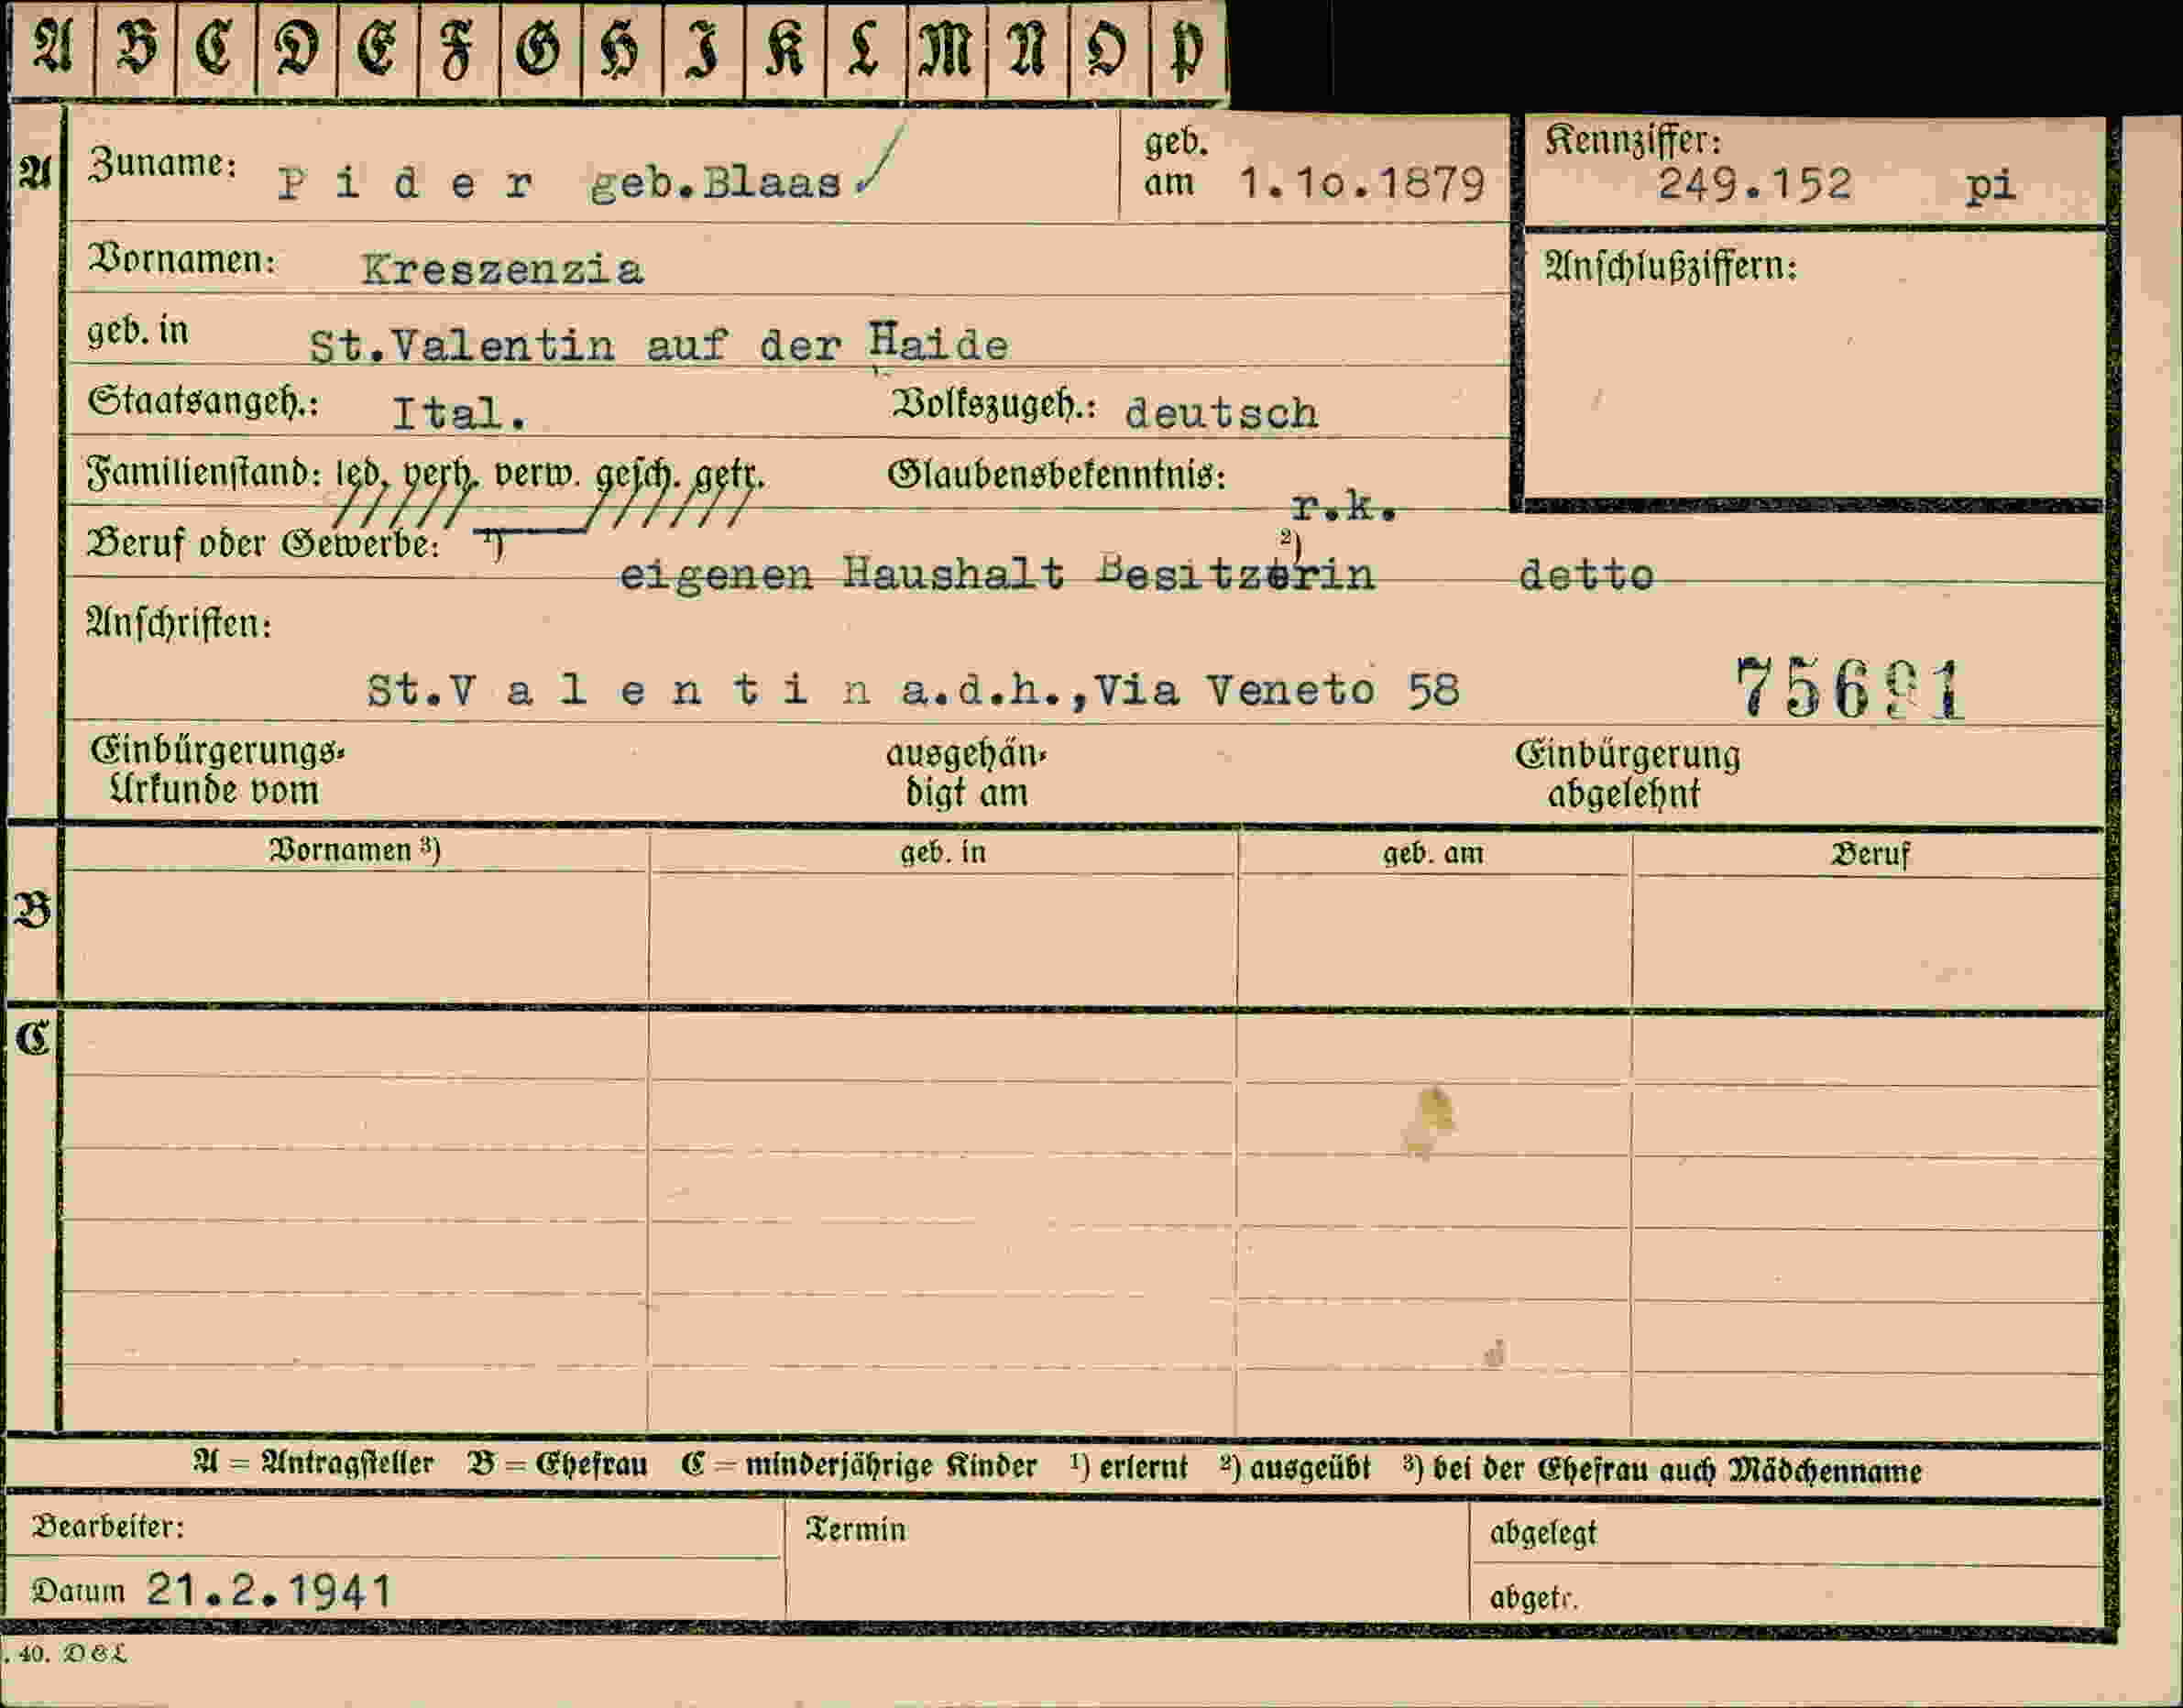 A B C D E F G H I K L M N O P
A Zuname: P i d e r geb.Blaas geb. am 1.10.1879 Kennziffer: 249.152 pi
Vornamen: Kreszenzia Anschlußziffern:
geb. in St.Valentin auf der Haide
Staatsangeh.: Ital. Volkszugeh.: deutsch
Familienstand: led. verh. verw. gesch. getr. Glaubensbekenntnis: r.k.
Beruf oder Gewerbe: 1) eigenen Haushalt Besitzerin 2) detto
Anschriften:
St.V a l e n t i n a.d.h.,Via Veneto 58
Einbürgerungs-Urkunde vom ausgehändigt am Einbürgerung abgelehnt
Vornamen 3) geb. in geb. am Beruf
B
C
A = Antragsteller B = Ehefrau C = minderjährige Kinder 1) erlernt 2) ausgeübt 3) bei der Ehefrau auch Mädchenname
Bearbeiter: Termin abgelegt
Datum 21.2.1941 abgetr.
. 40. D&L